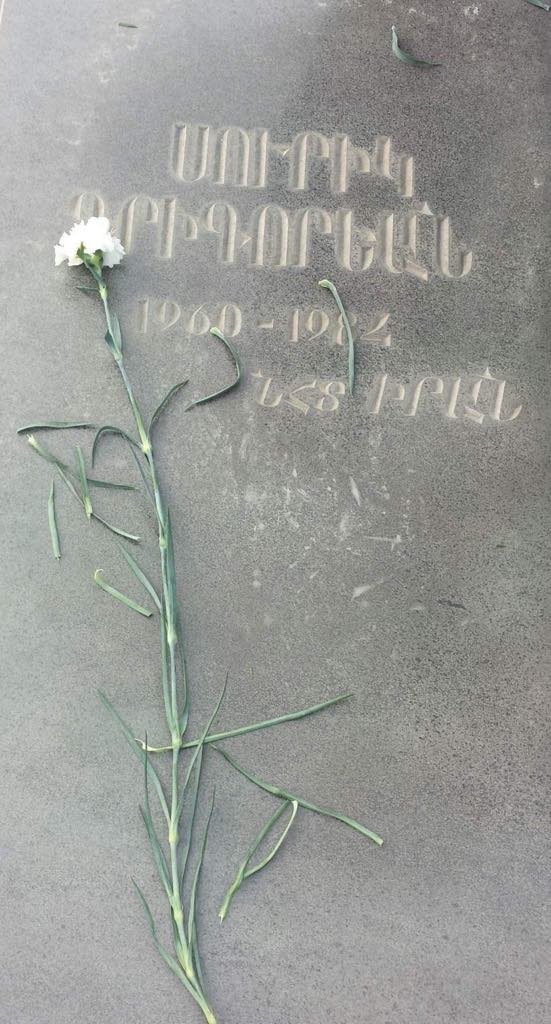 ՍՈՒՐԻԿ
ԳՐԻԳՈՐԵԱՆ
1960 - 1984
ՆՀՏ ԻՐԱՆ